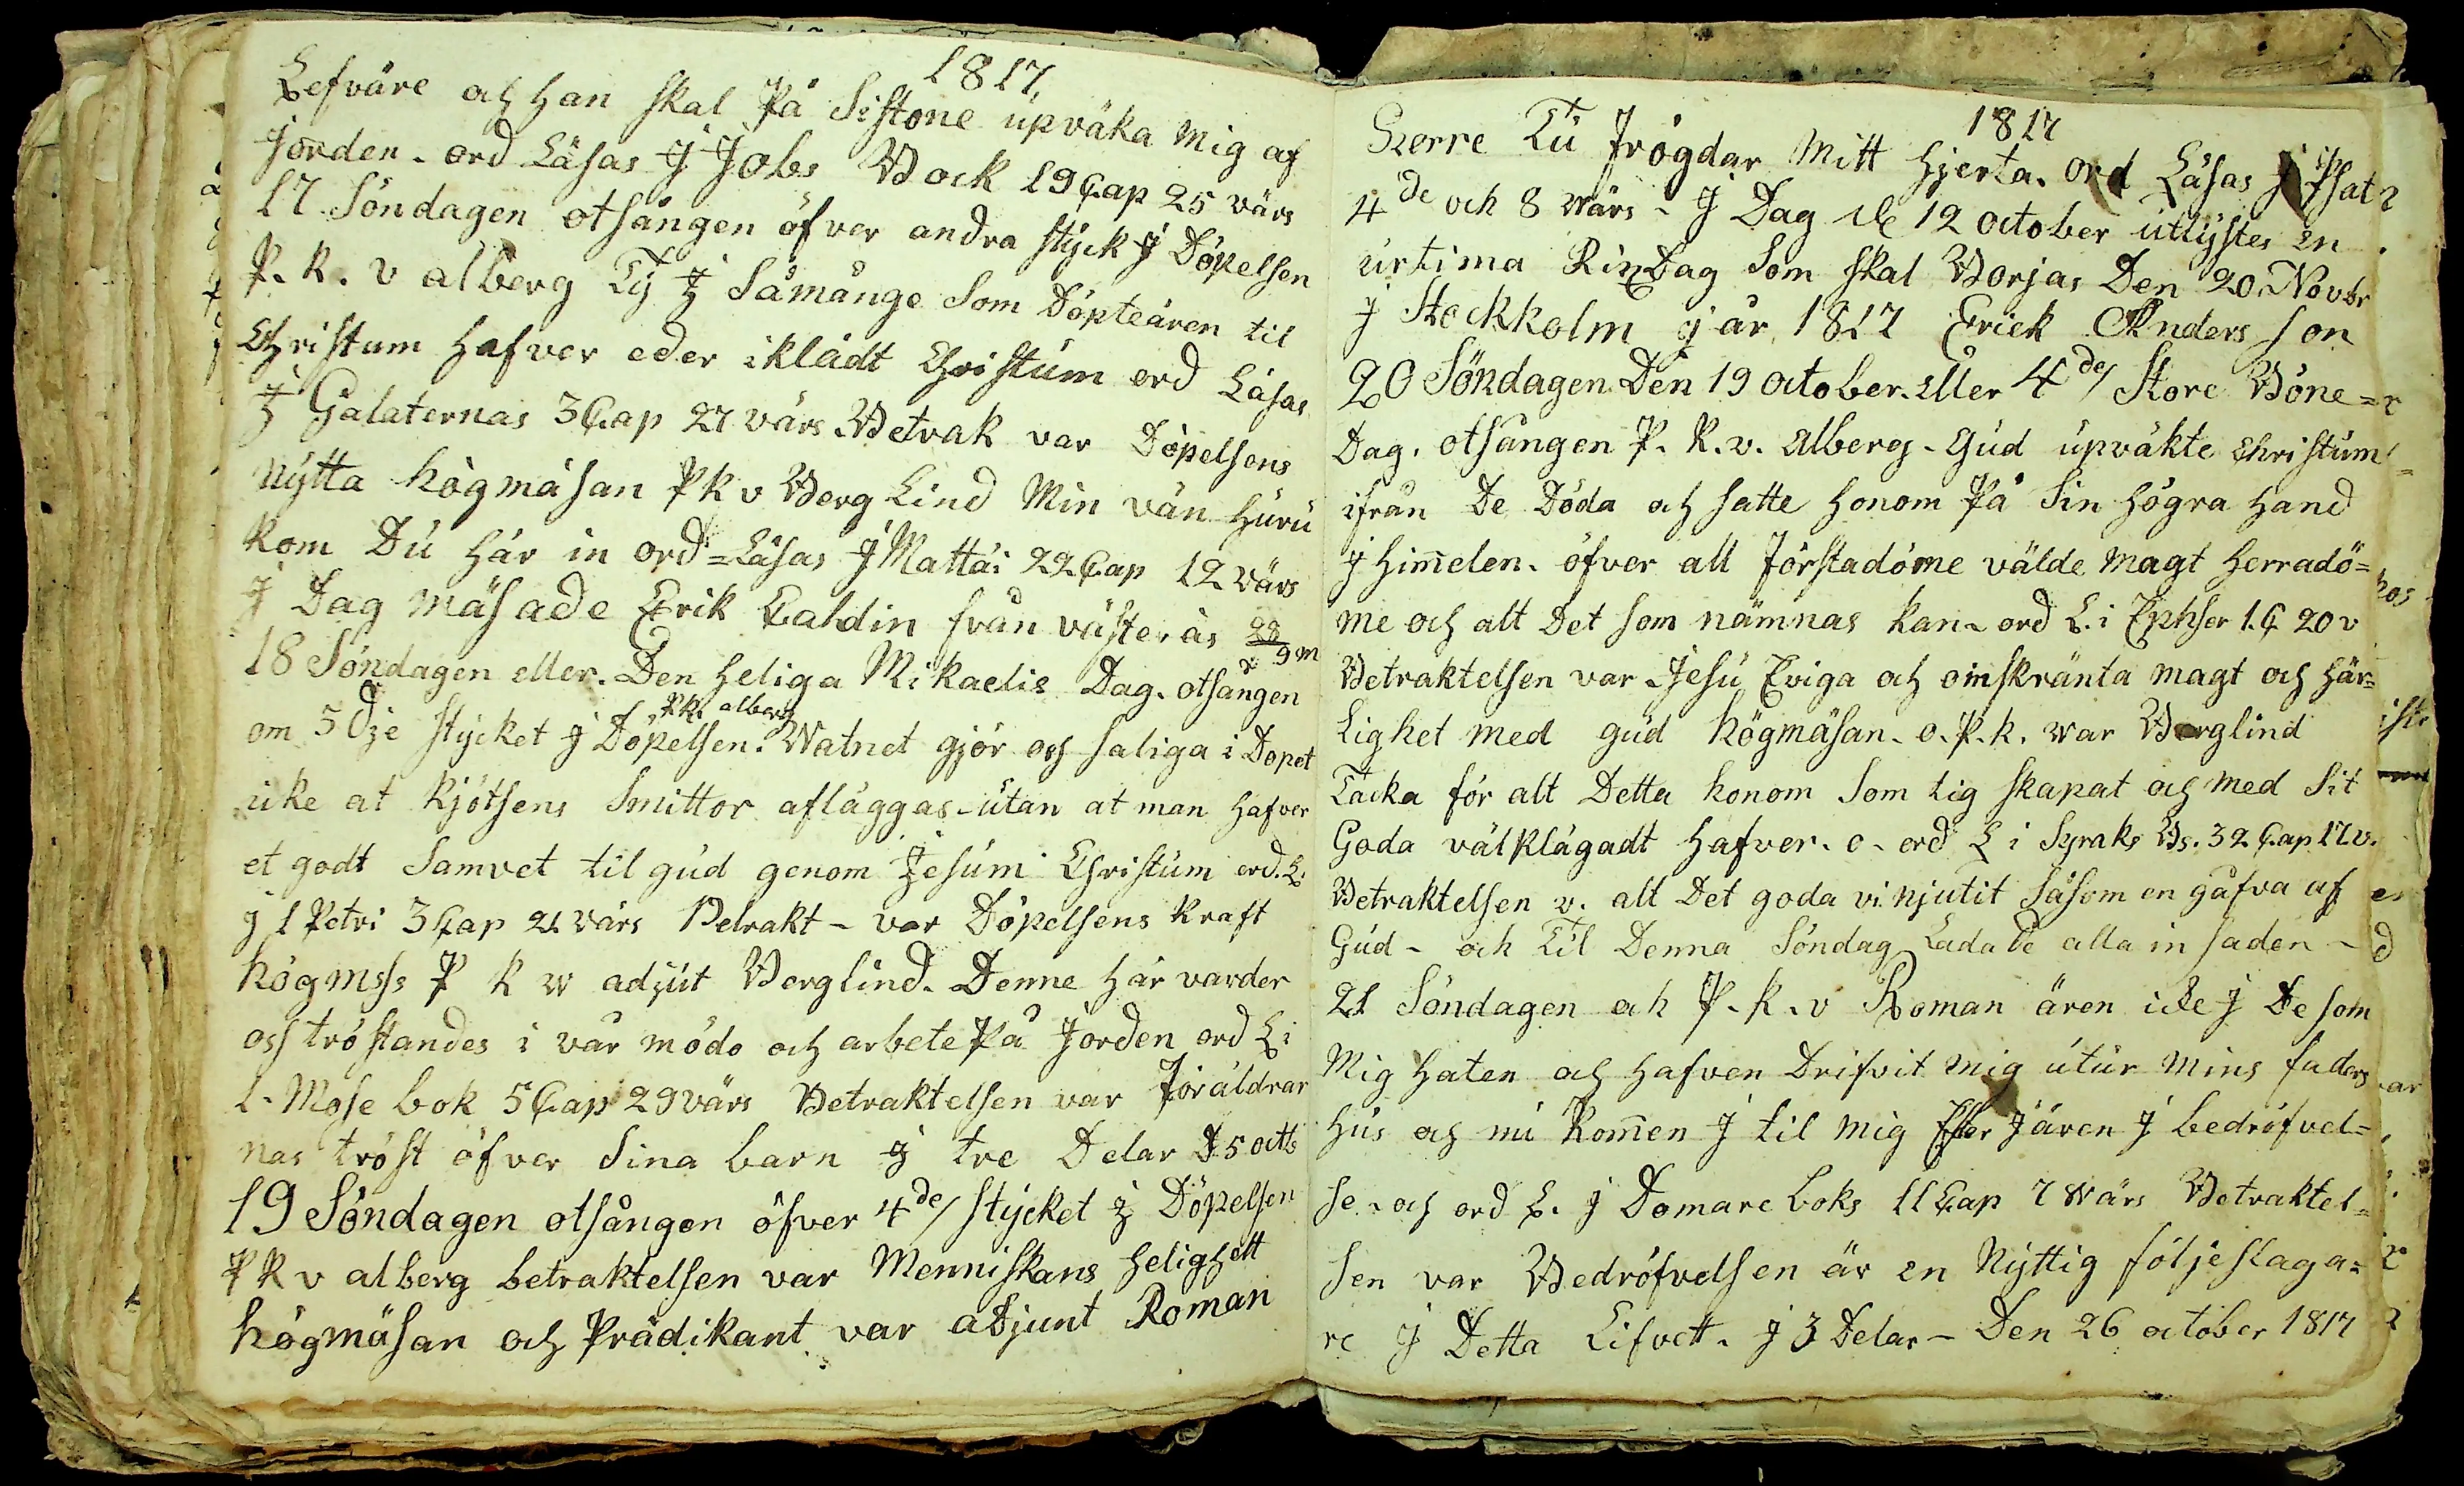 1817.
Lefväre och han skal På Sistone upväka mig af
jorden. ord Läsas J Jobs Bock 19 Cap 25 värs
17 Söndagen otsången öfver andra styck J Döpelsen
P. K. v alberg Ty J Såmånge Som Döpteären til
Christum hafver eder iklädt Christum ord Läsas
J Galaternas 3 Cap 27 värs Betrak var Döpelsens
nytta högmäsan P K v Berg Lind Min vän huru
kom Du här in ord = Läsas J Mattäi 22 Cap 12 värs
J Dag mäsade Erik Caldin från västerås 28/9 m
18 Söndagen eller. Den heliga Mikaelis Dag. otsången
PK. alberg
om 3 dje stycket J Döpelsen. Watnet gjör oss saliga i Dopet
icke at kjötsens Smittor afläggas - utan at man hafver
et godt Samvet til gud genom Jesum Christum ord. L.
j 1 Petri 3 Cap 21 värs Betrakt - var Döpelsens kraft
högmss P K w adjut Berglind. Denne här varder
oss tröstandes i vår mödo och arbete På Jorden ord L i
1. Mose bok 5 Cap 29 värs Betraktelsen var Föräldrar
nas tröst öfver Sina barn j tre Delar D 5 octb
19 Söndagen otsången öfver 4de/ stycket j Döpelsen
P K v alberg betraktelsen var Menniskans helighett
högmäsan och Prädikant var adjunt Roman
1817
Herre Tu Frögdar Mitt hjerta. ord Läsas J Psat
4de och 8 värs - J Dag de 12 october utlystes en
urtima Rixdag Som skal Borjas Den 20. Novbr
j Stockholm j år 1817 Erick Anders son
20 Söndagen Den 19 october. eller 4de/ Store Böne=
Dag. otsången P. K. v. Alberg - Gud upväkte Christum
ifrån De Döda och satte honom På Sin högra hand
j him̅elen. öfver all Förstadöme välde magt herradö=
me och alt Det som nämnas kan - ord L. i Ephser 1. C 20 v
Betraktelsen var Jesu Eviga och oinskränta magt och här=
Lighet med gud högmäsan. o. P. k. war Berglind
Tacka för alt Detta honom Som tig skapat och med Sit
Goda välklägadt hafver. o - ord L i Syraks Bs. 32 Cap 17. v.
Betraktelsen v. alt Det goda vi njutit Såsom en gåfva af
Gud - och Til Denna Söndag Ladade alla in saden -
21 Söndagen och P. K. v Roman ären icke j De som
Mig haten och hafven Drifvit mig utur mins faders
hus och nu kom̅en J til mig Efter J ären J bedröfvel=
se. och ord L. j Domare boks 11 Cap 7 wärs Betraktel=
sen var Bedröfvelsen är en Nyttig följeslaga=
re J Detta Lifvett. j 3 Delar - Den 26 october 1817